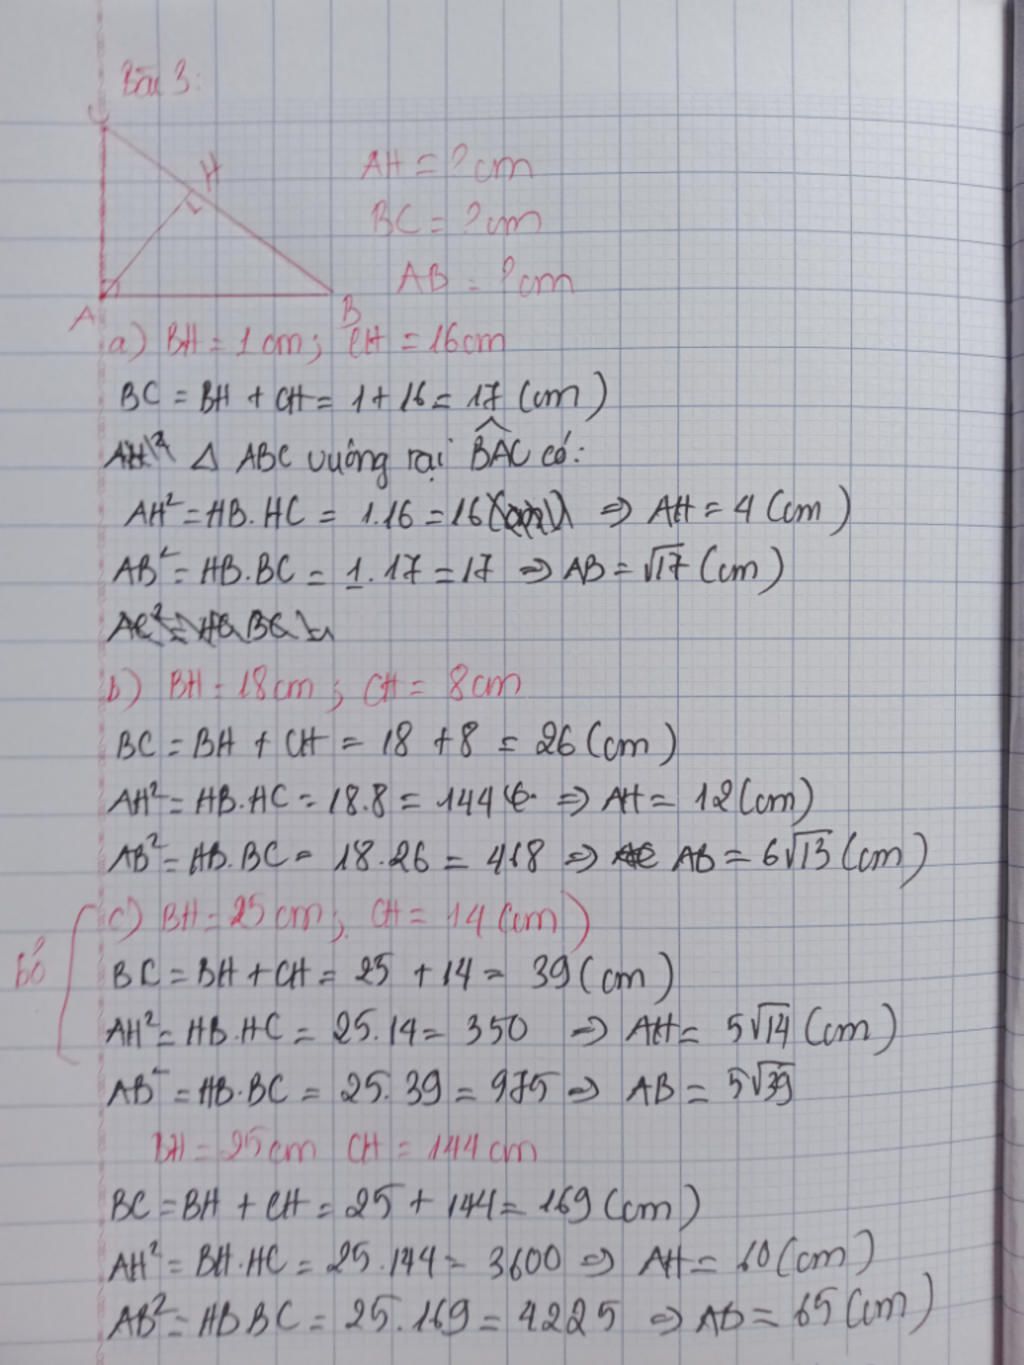 Bài 3:
C
H
AH = ? cm
BC = ? cm
AB = ? cm
A
B
a) BH = 1 cm; CH = 16 cm
BC = BH + CH = 1 + 16 = 17 (cm)
Δ ABC vuông tại BAC có:
AH² = HB.HC = 1.16 = 16 ⇒ AH = 4 (cm)
AB² = HB.BC = 1.17 = 17 ⇒ AB = √17 (cm)
b) BH = 18 cm; CH = 8 cm
BC = BH + CH = 18 + 8 = 26 (cm)
AH² = HB.HC = 18.8 = 144 ⇒ AH = 12 (cm)
AB² = HB.BC = 18.26 = 468 ⇒ AB = 6√13 (cm)
c) BH = 25 cm; CH = 14 (cm)
bỏ
BC = BH + CH = 25 + 14 = 39 (cm)
AH² = HB.HC = 25.14 = 350 ⇒ AH = 5√14 (cm)
AB² = HB.BC = 25.39 = 975 ⇒ AB = 5√39
BH = 25 cm CH = 144 cm
BC = BH + CH = 25 + 144 = 169 (cm)
AH² = BH.HC = 25.144 = 3600 ⇒ AH = 60 (cm)
AB² = HB BC = 25.169 = 4225 ⇒ AB = 65 (cm)